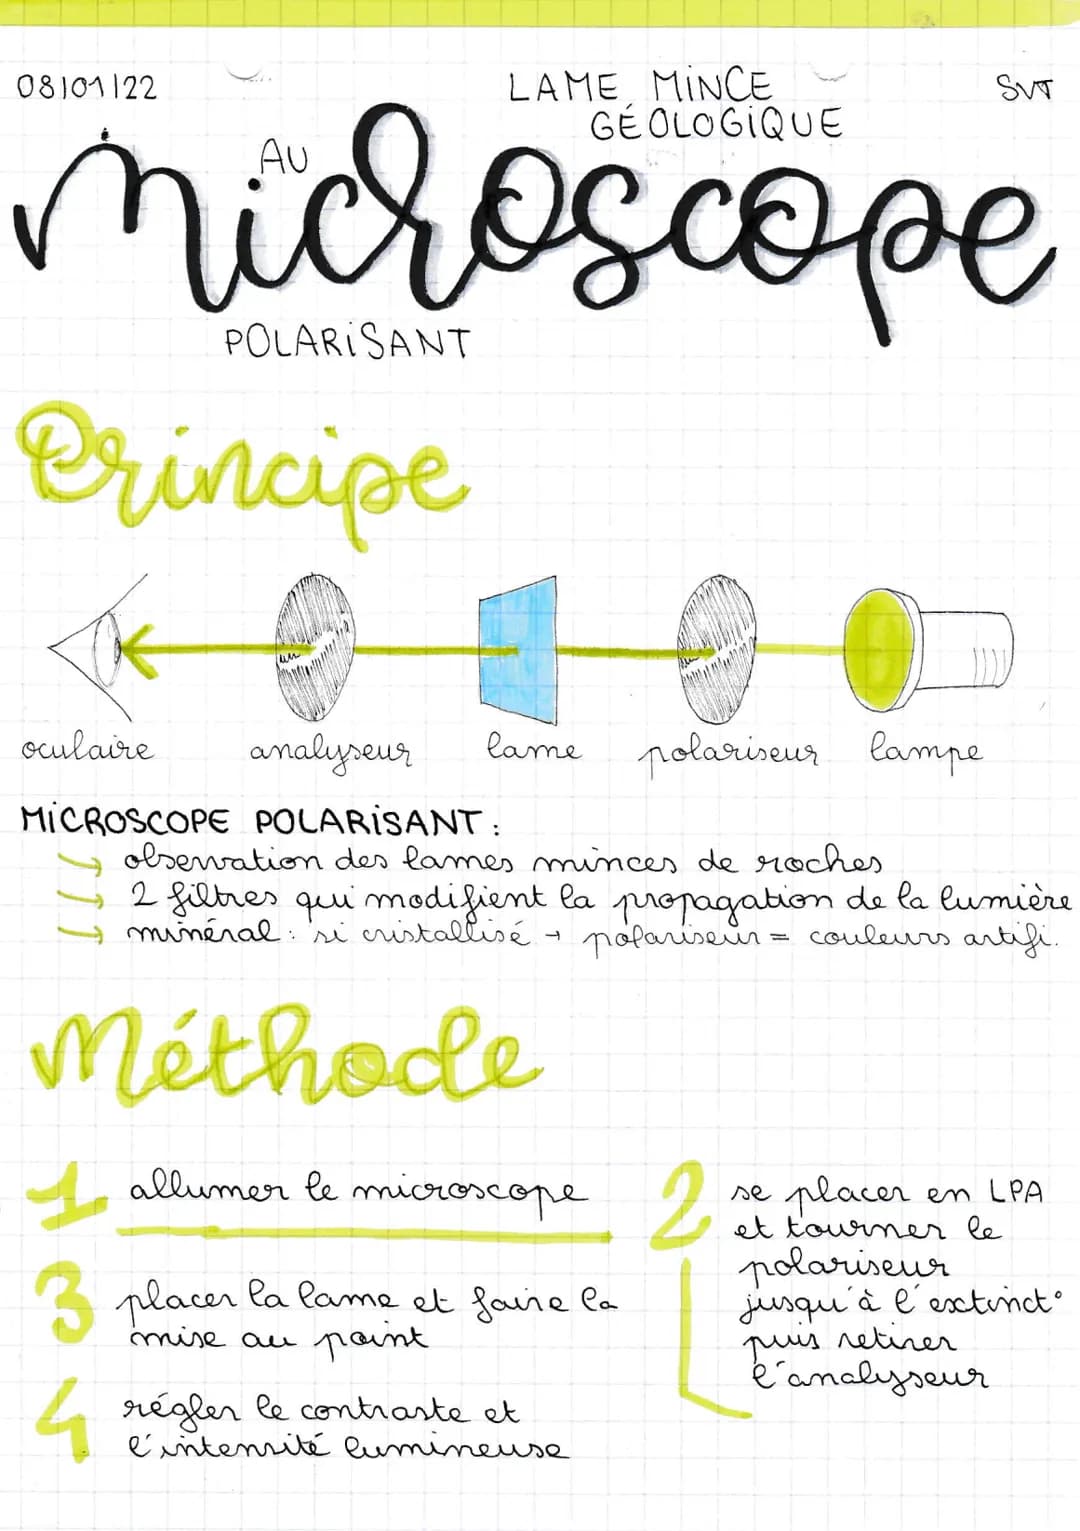 08/01/22
LAME MINCE
GÉOLOGIQUE
SVT
AU
Microscope
POLARISANT
Principe
oculaire analyseur lame polariseur lampe
MICROSCOPE POLARISANT :
↳ observation des lames minces de roches
↳ 2 filtres qui modifient la propagation de la lumière
↳ minéral : si cristallisé → polariseur = couleurs artifi.
Méthode
1 allumer le microscope
2 se placer en LPA
et tourner le
polariseur
jusqu'à l'extinct°
puis retirer
l'analyseur
3 placer la lame et faire la
mise au point
4 régler le contraste et
l'intensité lumineuse